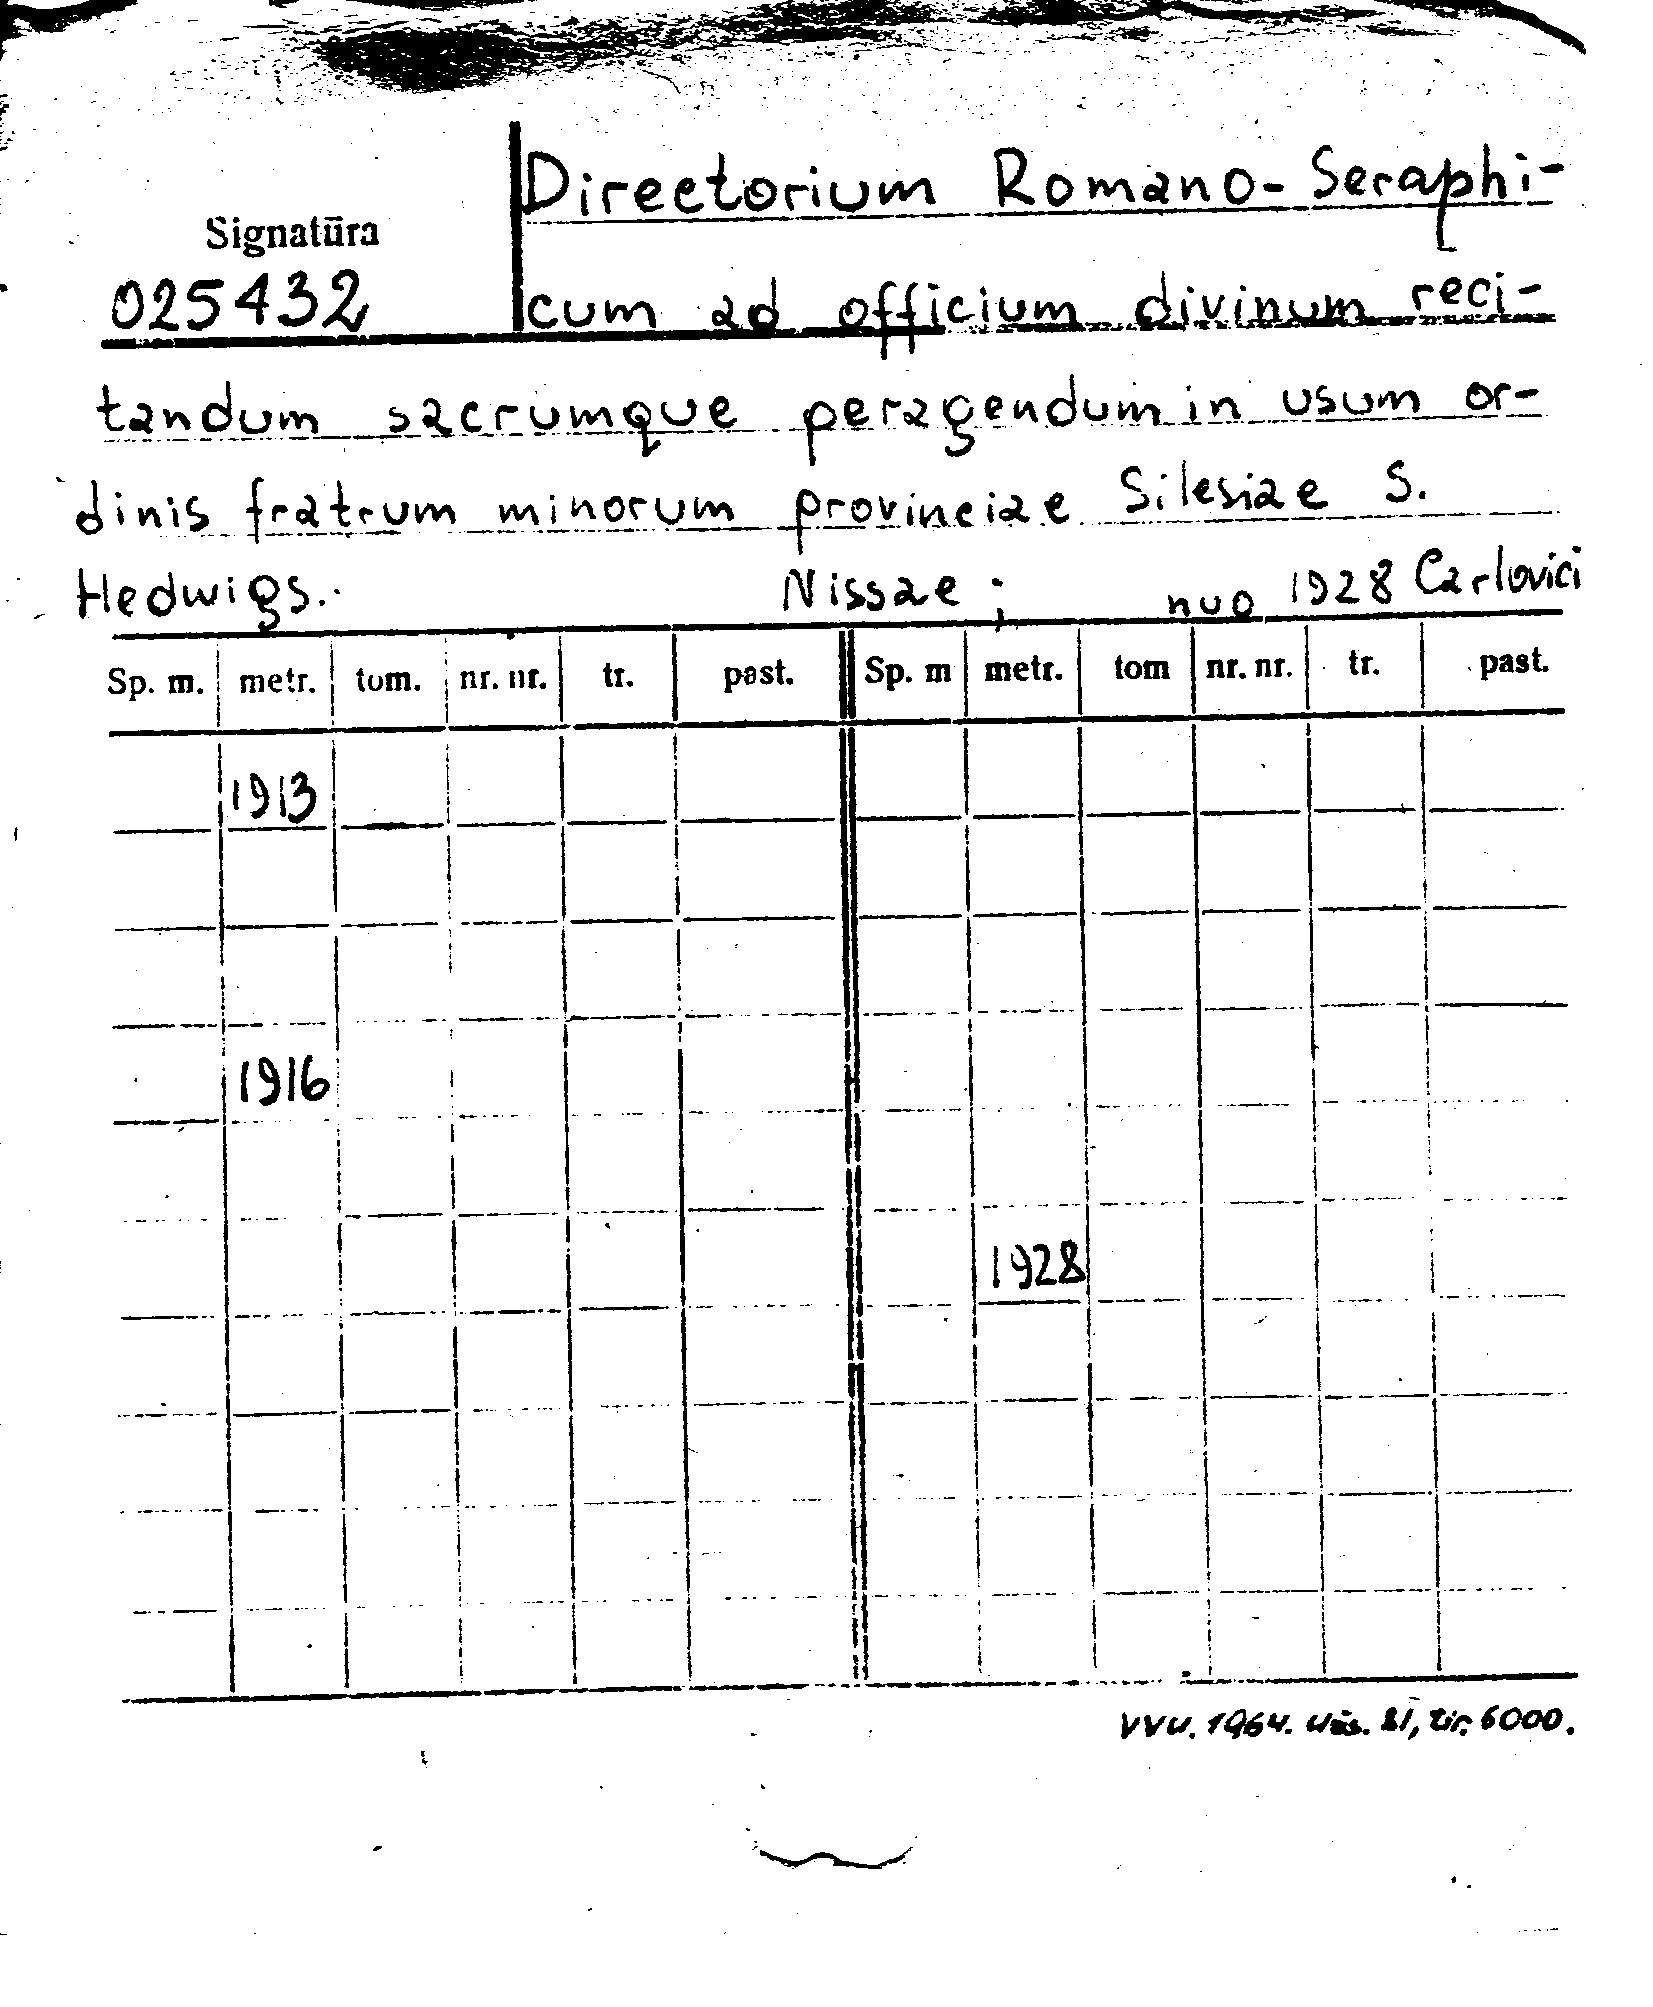 Directorium Romano-Seraphi-
Signatūra
025432
cum ad officium divinum reci-
tandum sacrumque peragendum in usum or-
dinis fratrum minorum provinciae Silesiae S.
Hedwigs. Nissae ; nuo 1928 Carlovici
Sp. m. metr. tom. nr. nr. tr. past. Sp. m metr. tom nr. nr. tr. past.
1913
1916
1928
VVU. 1964. Užs. 81, tir. 6000.